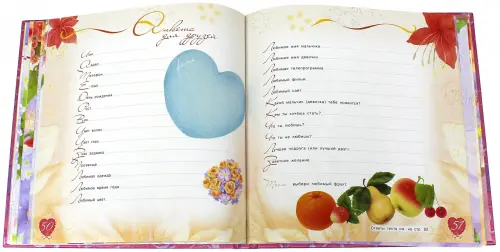 Анкета
для друзей
Имя
Адрес
Телефон
E-mail
День рождения
Рост
Вес
Цвет волос
Цвет глаз
Знак зодиака
Любимая одежда
Любимое время года
Любимый цвет
50
Любимое имя мальчика
Любимое имя девочки
Любимая телепрограмма
Любимый фильм
Любимый
Какие мальчики (девочки) тебе нравятся?
Кем ты хочешь стать?
Что ты любишь?
Что ты не любишь?
Лучшая подруга (или лучший друг)
Заветное желание
выбери любимый фрукт.
Ответы теста см. на стр.
51